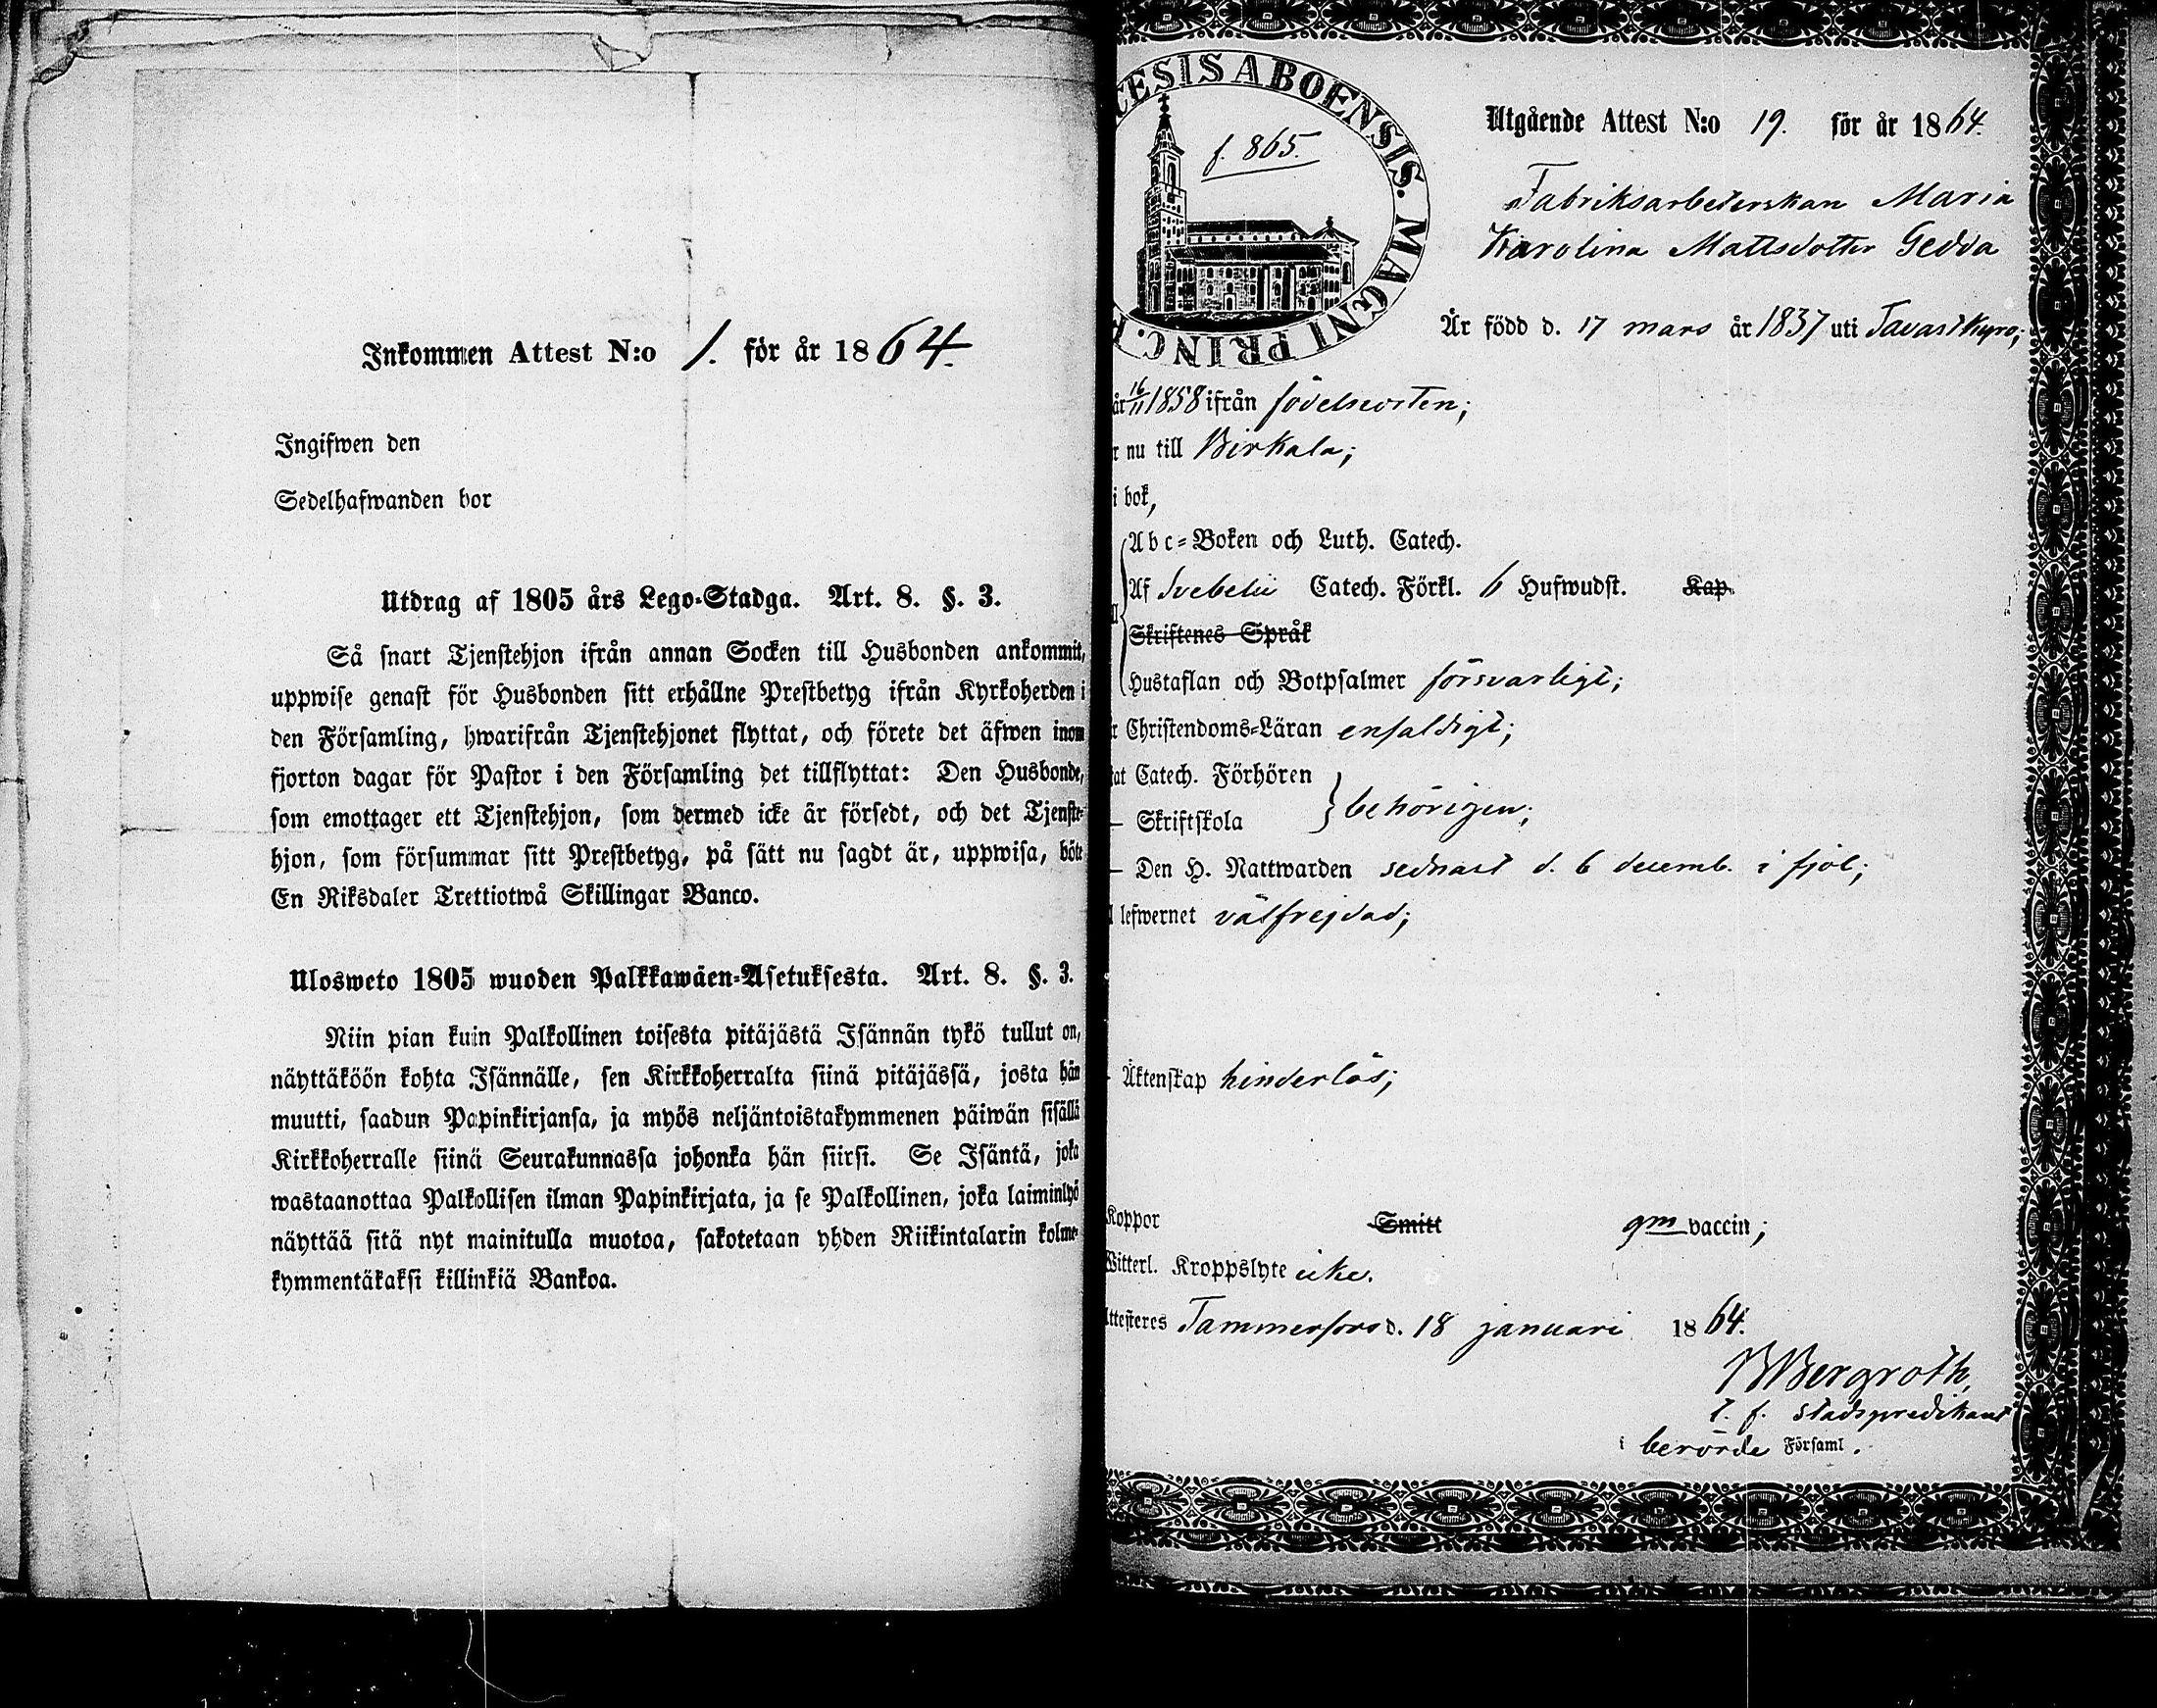 Inkommen Attest N:o 1. för år 1864.
Ingifwen den
Sedelhafwanden bor
Utdrag af 1805 års Lego-Stadga. Art. 8. §. 3.
Så snart Tjenstehjon ifrån annan Socken till Husbonden ankommit,
uppwise genast för Husbonden sitt erhållne Prestbetyg ifrån Kyrkoherden i
den Församling, hwarifrån Tjenstehjonet flyttat, och förete det äfwen inom
fjorton dagar för Pastor i den Församling det tillflyttat: Den Husbonde,
som emottager ett Tjenstehjon, som dermed icke är försedt, och det Tjenste-
hjon, som försummar sitt Prestbetyg, på sätt nu sagdt är, uppwisa, böte
En Riksdaler Trettiotwå Skillingar Banco.
Ulosweto 1805 wuoden Palkkawäen-Asetuksesta. Art. 8. §. 3.
Niin pian kuin Palkollinen toisesta pitäjästä Isännän tykö tullut on,
näyttäköön kohta Isännälle, sen Kirkkoherralta siinä pitäjässä, josta hän
muutti, saadun Papinkirjansa, ja myös neljäntoistakymmenen päiwän sisällä
Kirkkoherralle siinä Seurakunnassa johonka hän siirsi. Se Isäntä, joka
wastaanottaa Palkollisen ilman Papinkirjata, ja se Palkollinen, joka laiminlyö
näyttää sitä nyt mainitulla muotoa, sakotetaan yhden Riikintalarin kolme-
kymmentäkaksi killinkiä Bankoa.
ESIS ABOENSIS. MAGNI PRINC.
f. 865.
Utgående Attest N:o 19. för år 1864.
Fabriksarbeterskan Maria
Karolina Mattsdotter Gedda
Är född d. 17 mars år 1837 uti Tavastkyro;
år 16/11 1858 ifrån födelseorten;
r nu till Birkala;
i bok,
Abc-Boken och Luth. Catech.
Af Svebelii Catech. Förkl. 6 Hufwudst. Kap.
Skriftenes Språk
Hustaflan och Botpsalmer försvarligt;
r Christendoms-Läran enfaldigt;
jat Catech. Förhören
— Skriftskola } behörigen;
— Den H. Nattwarden sednast d. 6 decemb. i fjol;
l lefwernet välfrejdad;
Äktenskap hinderlös;
Koppor Smitt gm vaccin;
Witterl. Kroppslyte icke.
Attesteres Tammerfors d. 18 januari 1864.
BBergroth,
t. f. stadspredikant
i berörde Församl.